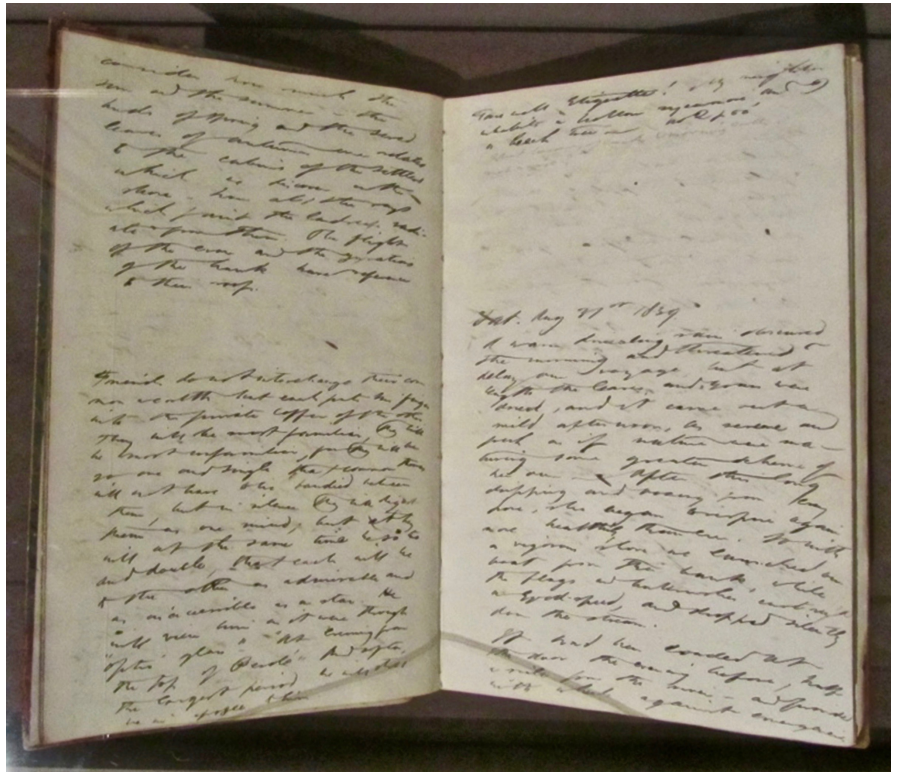 consider how much the
sun and the summer – the
buds of spring and the sered
leaves of autumn are related
to the cabins of the settlers
which we discern on the
shore – how all the rays
which paint the landscape radi-
ate from them. The flight
of the crow and the gyrations
of the hawk have reference
to their roofs.
Friends do not interchange their com
mon wealth but each puts his finger
into the private coffer of the other.
They will be most familiar, they will
be most unfamiliar, for they will be
so one and single that common themes
will not have to be bandied between
them, but in silence they will digest
them as one mind; but they
will at the same time be so two
and double, that each will be
to the other as admirable and
as inaccessible as a star. He
will view him as it were through
"optic glass" – "At evening from
the top of Fesolé." And after
the longest period, he will still
be in apogee to him
Farewell Etiquette! My neighbor
inhabits a hollow sycamore, and
a beech tree
Sat. Aug 31st 1839
A warm drizzling rain obscured
the morning and threatened to
delay our voyage, but at
length the leaves and grass were
dried, and it came out a
mild afternoon, as serene and
fresh as if nature were ma-
turing some greater scheme of
her own. After this long
dripping and oozing from every
pore, she began to respire again
more healthily than ever. So with
a vigorous shove we launched our
boat from the bank, while
the flags and bulrushes curtseyed
a God speed, and dropped silently
down the stream.
It had been loaded at
the door the evening before, half
a mile from the river – and provided
with wheels against emergencies